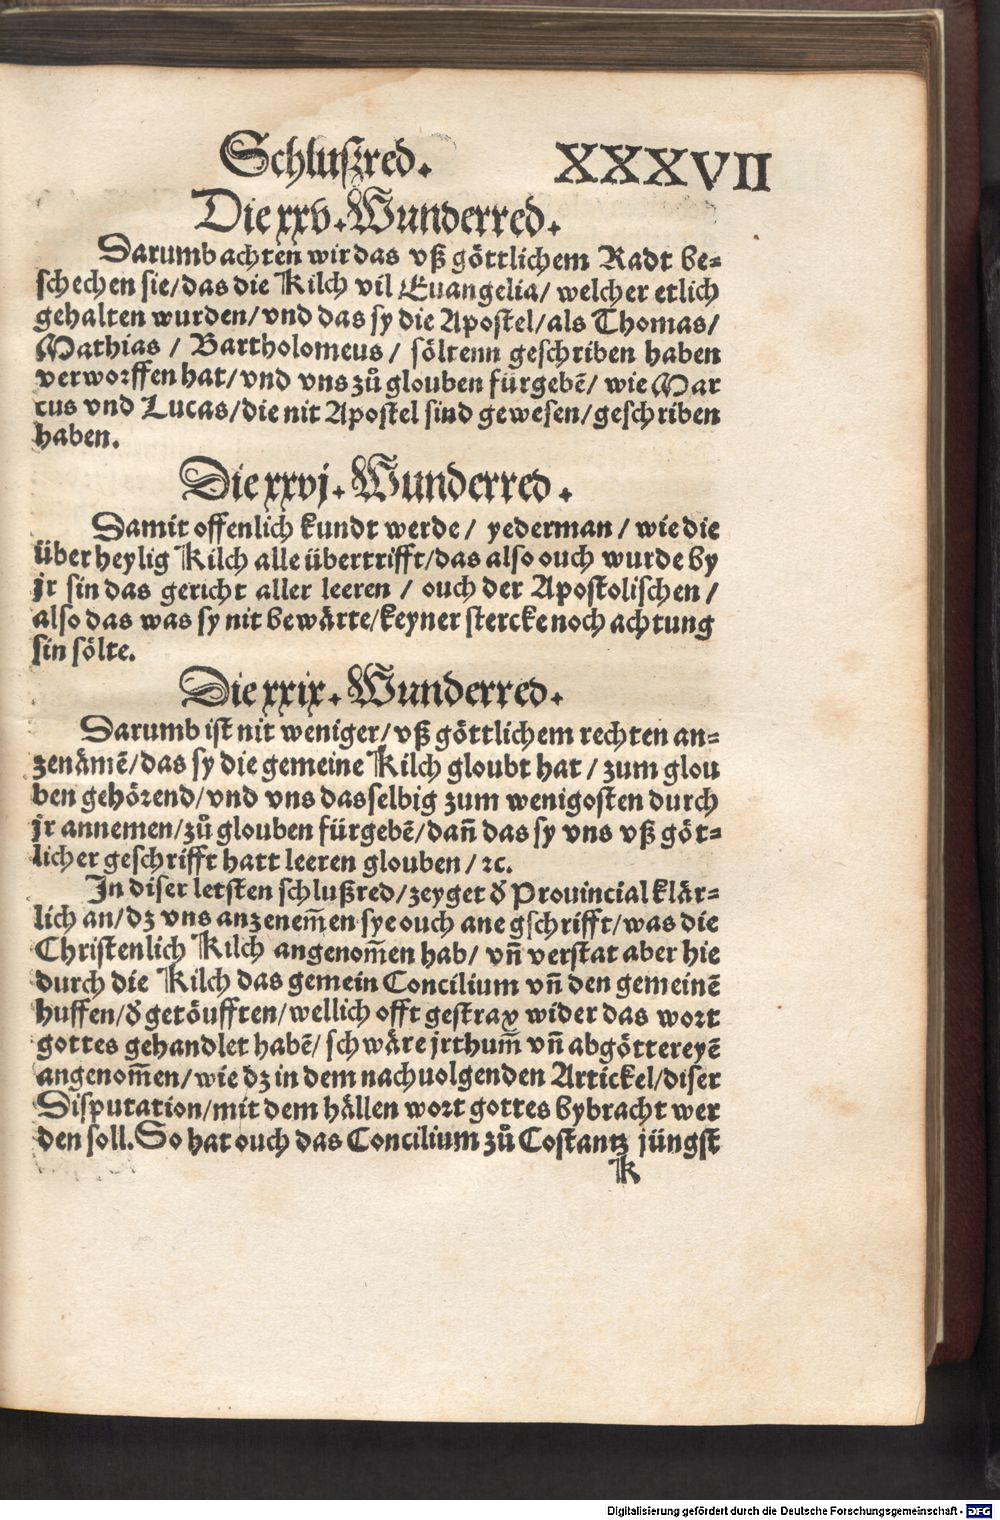 Schluſzred. XXXVII
Die xxv. Wunderred.
Darumb achten wir das vß göttlichem Radt be⸗
ſchechen ſie/ das die Kilch vil Euangelia/ welcher etlich
gehalten wurden/ vnd das ſy die Apoſtel/ als Thomas/
Mathias / Bartholomeus / ſöltenn geſchriben haben
verworffen hat/ vnd vns zů glouben fürgebē/ wie Mar
cus vnd Lucas/ die nit Apoſtel ſind geweſen/ geſchriben
haben.
Die xxvj. Wunderred.
Damit offenlich kundt werde/ yederman / wie die
über heylig Kilch alle übertrifft/ das alſo ouch wurde by
jr ſin das gericht aller leeren / ouch der Apoſtoliſchen /
alſo das was ſy nit bewärte/ keyner ſtercke noch achtung
ſin ſölte.
Die xxix. Wunderred.
Darumb iſt nit weniger/ vß göttlichem rechten an⸗
zenämē/ das ſy die gemeine Kilch gloubt hat / zum glou
ben gehörend/ vnd vns daſſelbig zum wenigoſten durch
jr annemen/ zů glouben fürgebē/ dañ das ſy vns vß göt⸗
licher geſchrifft hatt leeren glouben / ꝛc.
In diſer letſten ſchlußred/ zeyget d̕ Prouincial klär⸗
lich an/ dz vns anzenem̄en ſye ouch ane gſchrifft/ was die
Chriſtenlich Kilch angenom̄en hab/ vn̄ verſtat aber hie
durch die Kilch das gemein Concilium vn̄ den gemeinē
huffen/ d̕ getöufften/ wellich offt geſtrax wider das wort
gottes gehandlet habē/ ſchwäre jrthum̄ vn̄ abgöttereyē
angenom̄en/ wie dz in dem nachuolgenden Artickel/ diſer
Diſputation/ mit dem hällen wort gottes bybracht wer
den ſoll. So hat ouch das Concilium zů Coſtantz jüngſt
k
Digitalisierung gefördert durch die Deutsche Forschungsgemeinschaft - DFG